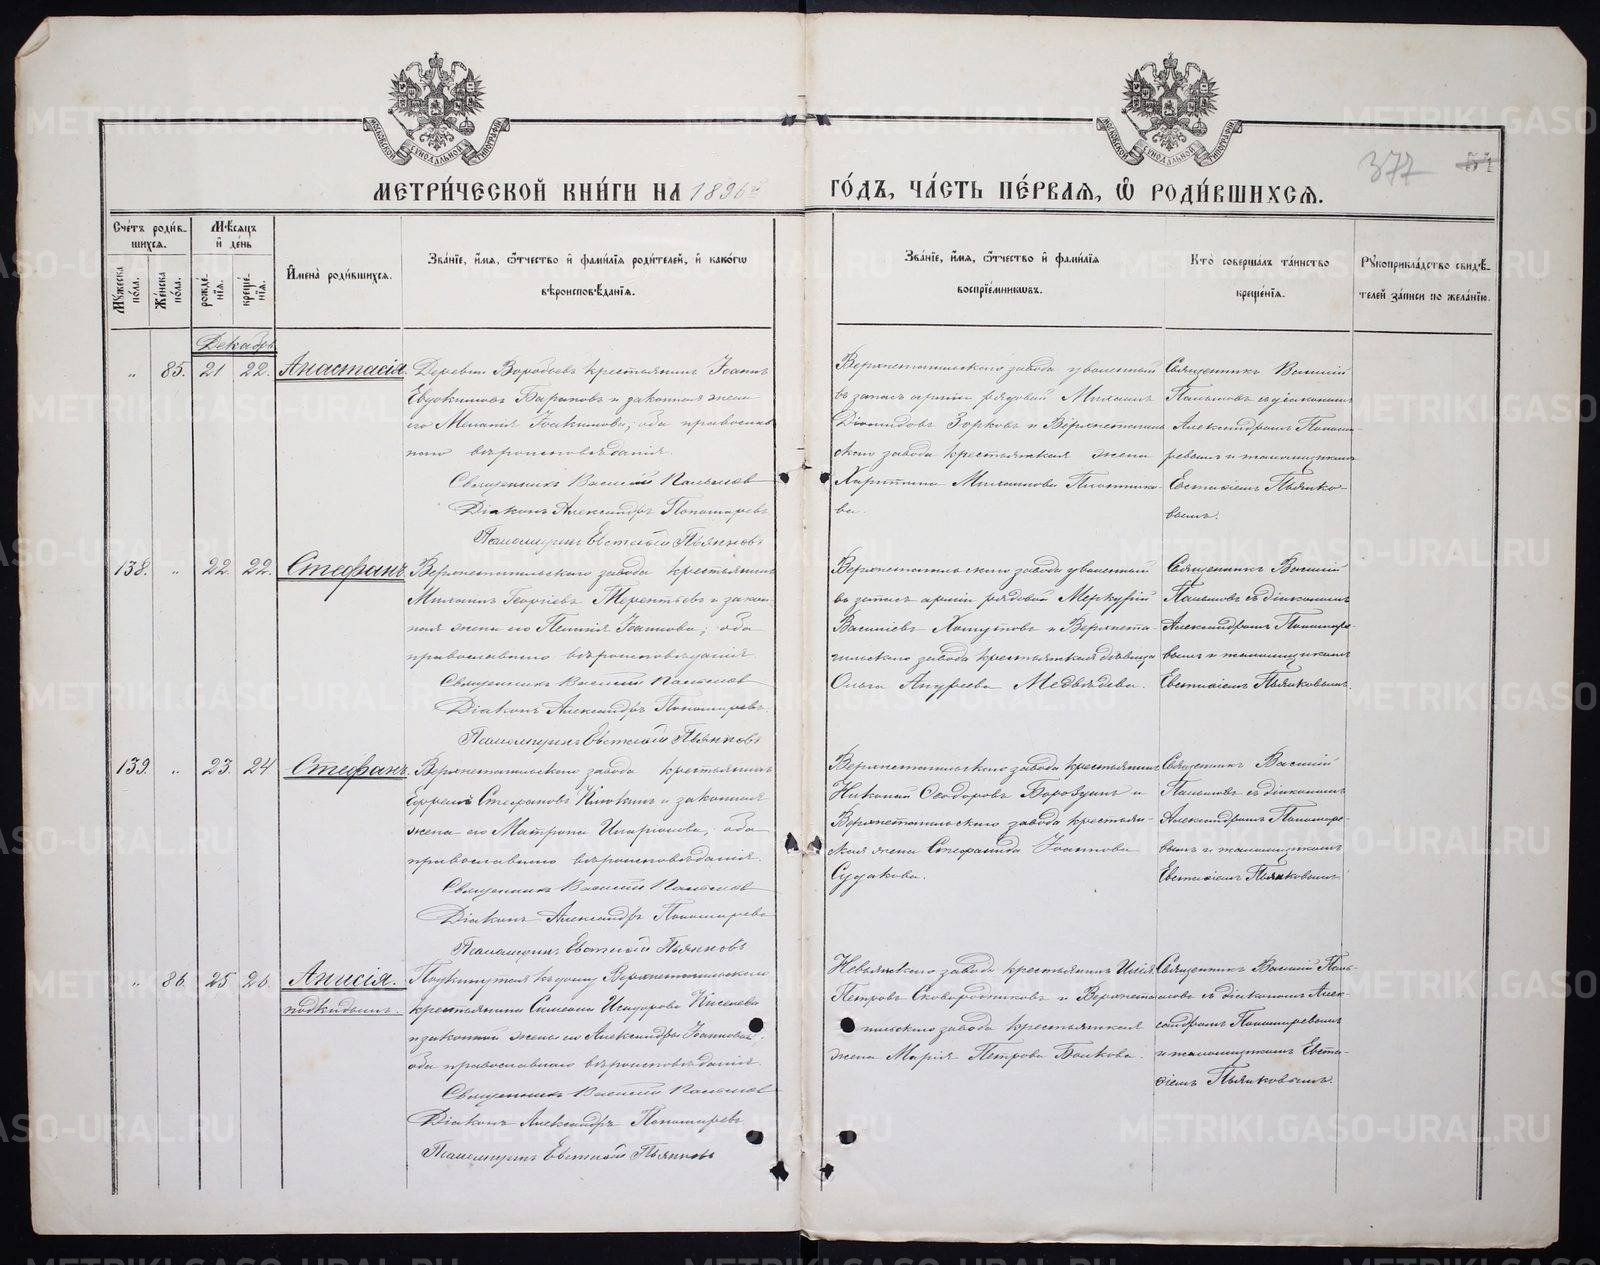 377 51
МЕТРИ́ЧЕСКОЙ КНИ́ГИ НА 1896й ГО́ДЪ, ЧА́СТЬ ПЕ́РВАЯ, Ѽ РОДИ́ВШИХСЯ.
Сче́тъ роди́в-
шихся.
Мѣ́сяцъ
и҆ де́нь
Му́жеска по́ла.
Же́нска по́ла.
рожде́-
нія.
креще́-
нія.
И҆мена̀ роди́вшихся.
Зва́ніе, и҆́мя, ѻ҆́тчество и҆ фами́лія роди́телей, и҆ како́гѡ
вѣроисповѣ́данія.
Зва́ніе, и҆́мя, ѻ҆́тчество и҆ фами́лія
воспріе́мниковъ.
Кто̀ соверша́лъ та́инство
креще́нія.
Рꙋкоприкла́дство свидѣ́-
телей за́писи по жела́нію.
Декабрь
" 85. 21 22. Анастасія.
Деревни Воробьевъ крестьянинъ Іоаннъ
Евдокимовъ Барановъ и законная жена
его Меланія Іоакимова; оба православ
наго вѣроисповѣданія.
Священникъ Василій Пальмовъ
Діаконъ Александръ Пономаревъ
Псаломщикъ Евстафій Пьянковъ
Верхнетагильскаго завода уволенный
въ запасъ арміи рядовой Михаилъ
Діомидовъ Зорковъ и Верхнетагиль
скаго завода крестьянская жена
Харитина Михаилова Плотнико-
ва.
Священникъ Василій
Пальмовъ съ діакономъ
Александромъ Понома-
ревымъ и псаломщикомъ
Евстафіемъ Пьянко-
вымъ.
138. " 22. 22. Стефанъ.
Верхнетагильскаго завода крестьянинъ
Михаилъ Георгіевъ Терентьевъ и закон-
ная жена его Іоаннова; оба
православнаго вѣроисповѣданія.
Священникъ Василій Пальмовъ
Діаконъ Александръ Пономаревъ.
Псаломщикъ Евстафій Пьянковъ
Верхнетагильскаго завода уволенный
въ запасъ арміи рядовой Меркурій
Василіевъ Хомутовъ и Верхнета-
гильскаго завода крестьянская дѣвица
Ольга Андреева Медвѣдева.
Священникъ Василій
Пальмовъ съ діакономъ
Александромъ Пономаре-
вымъ и псаломщикомъ
Евстафіемъ Пьянковымъ.
139. " 23. 24 Стефанъ.
Верхнетагильскаго завода крестьянинъ
Ефремъ Стефановъ и законная
жена его Матрона Иларіонова; оба
православнаго вѣроисповѣданія.
Священникъ Василій Пальмовъ
Діаконъ Александръ Пономаревъ
Псаломщикъ Евстафій Пьянковъ
Верхнетагильскаго завода крестьянинъ
Николай Ѳеодоровъ Боровдинъ и
Верхнетагильскаго завода крестьян-
ская жена Стефанида Іоаннова
Судакова.
Священникъ Василій
Пальмовъ съ діакономъ
Александромъ Пономаре-
вымъ и псаломщикомъ
Евстафіемъ Пьянковымъ.
" 86. 25 26. Анисія.
подкидышъ.
Подкинутая къ дому Верхнетагильскаго
крестьянина Симеона Исидорова Киселева
и законной жены его Александры Іоанновой.
оба православнаго вѣроисповѣданія.
Священникъ Василій Пальмовъ
Діаконъ Александръ Пономаревъ
Псаломщикъ Евстафій Пьянковъ
Невьянскаго завода крестьянинъ Илія
Петровъ Сковородниковъ и Верхнета-
гильскаго завода крестьянская
жена Марія Петрова Балкова.
Священникъ Василій Паль-
мовъ съ діакономъ Алек-
сандромъ Пономаревымъ
и псаломщикомъ Евста-
фіемъ Пьянковымъ.
METRIKI.GASO-URAL.RU